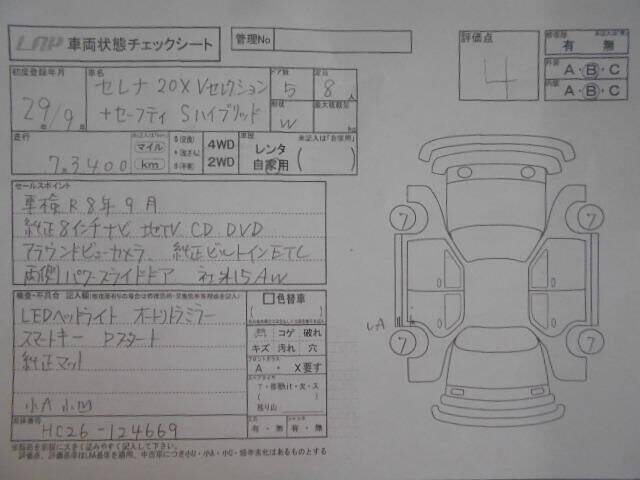 LAP 車両状態チェックシート
管理No
評価点
4
修復歴
有 ・ 無
外装 A・B・C
内装 A・B・C
初度登録年月
29年/9月
車名
セレナ 20X Vセレクション
+セーフティ Sハイブリッド
ドア数
5
定員
8人
形状
W
最大積載量
kg
走行
7,3400
マイル
km
4WD
2WD
車歴
未記入は「自家用」
レンタ
自家用
セールスポイント
車検 R8年9月
純正8インチナビ 地TV CD DVD
アラウンドビューカメラ、純正ビルトインETC
両側パワースライドドア 社外15AW
検査・不具合 記入欄
LEDヘッドライト オートリトラミラー
スマートキー Pスタート
純正マット
小A 小凹
色替車
コゲ 破れ
キズ 汚れ 穴
フロントガラス
A ・ X要す
残り山
有・無 有・無
車体番号
HC26-124669
7
7
7
7